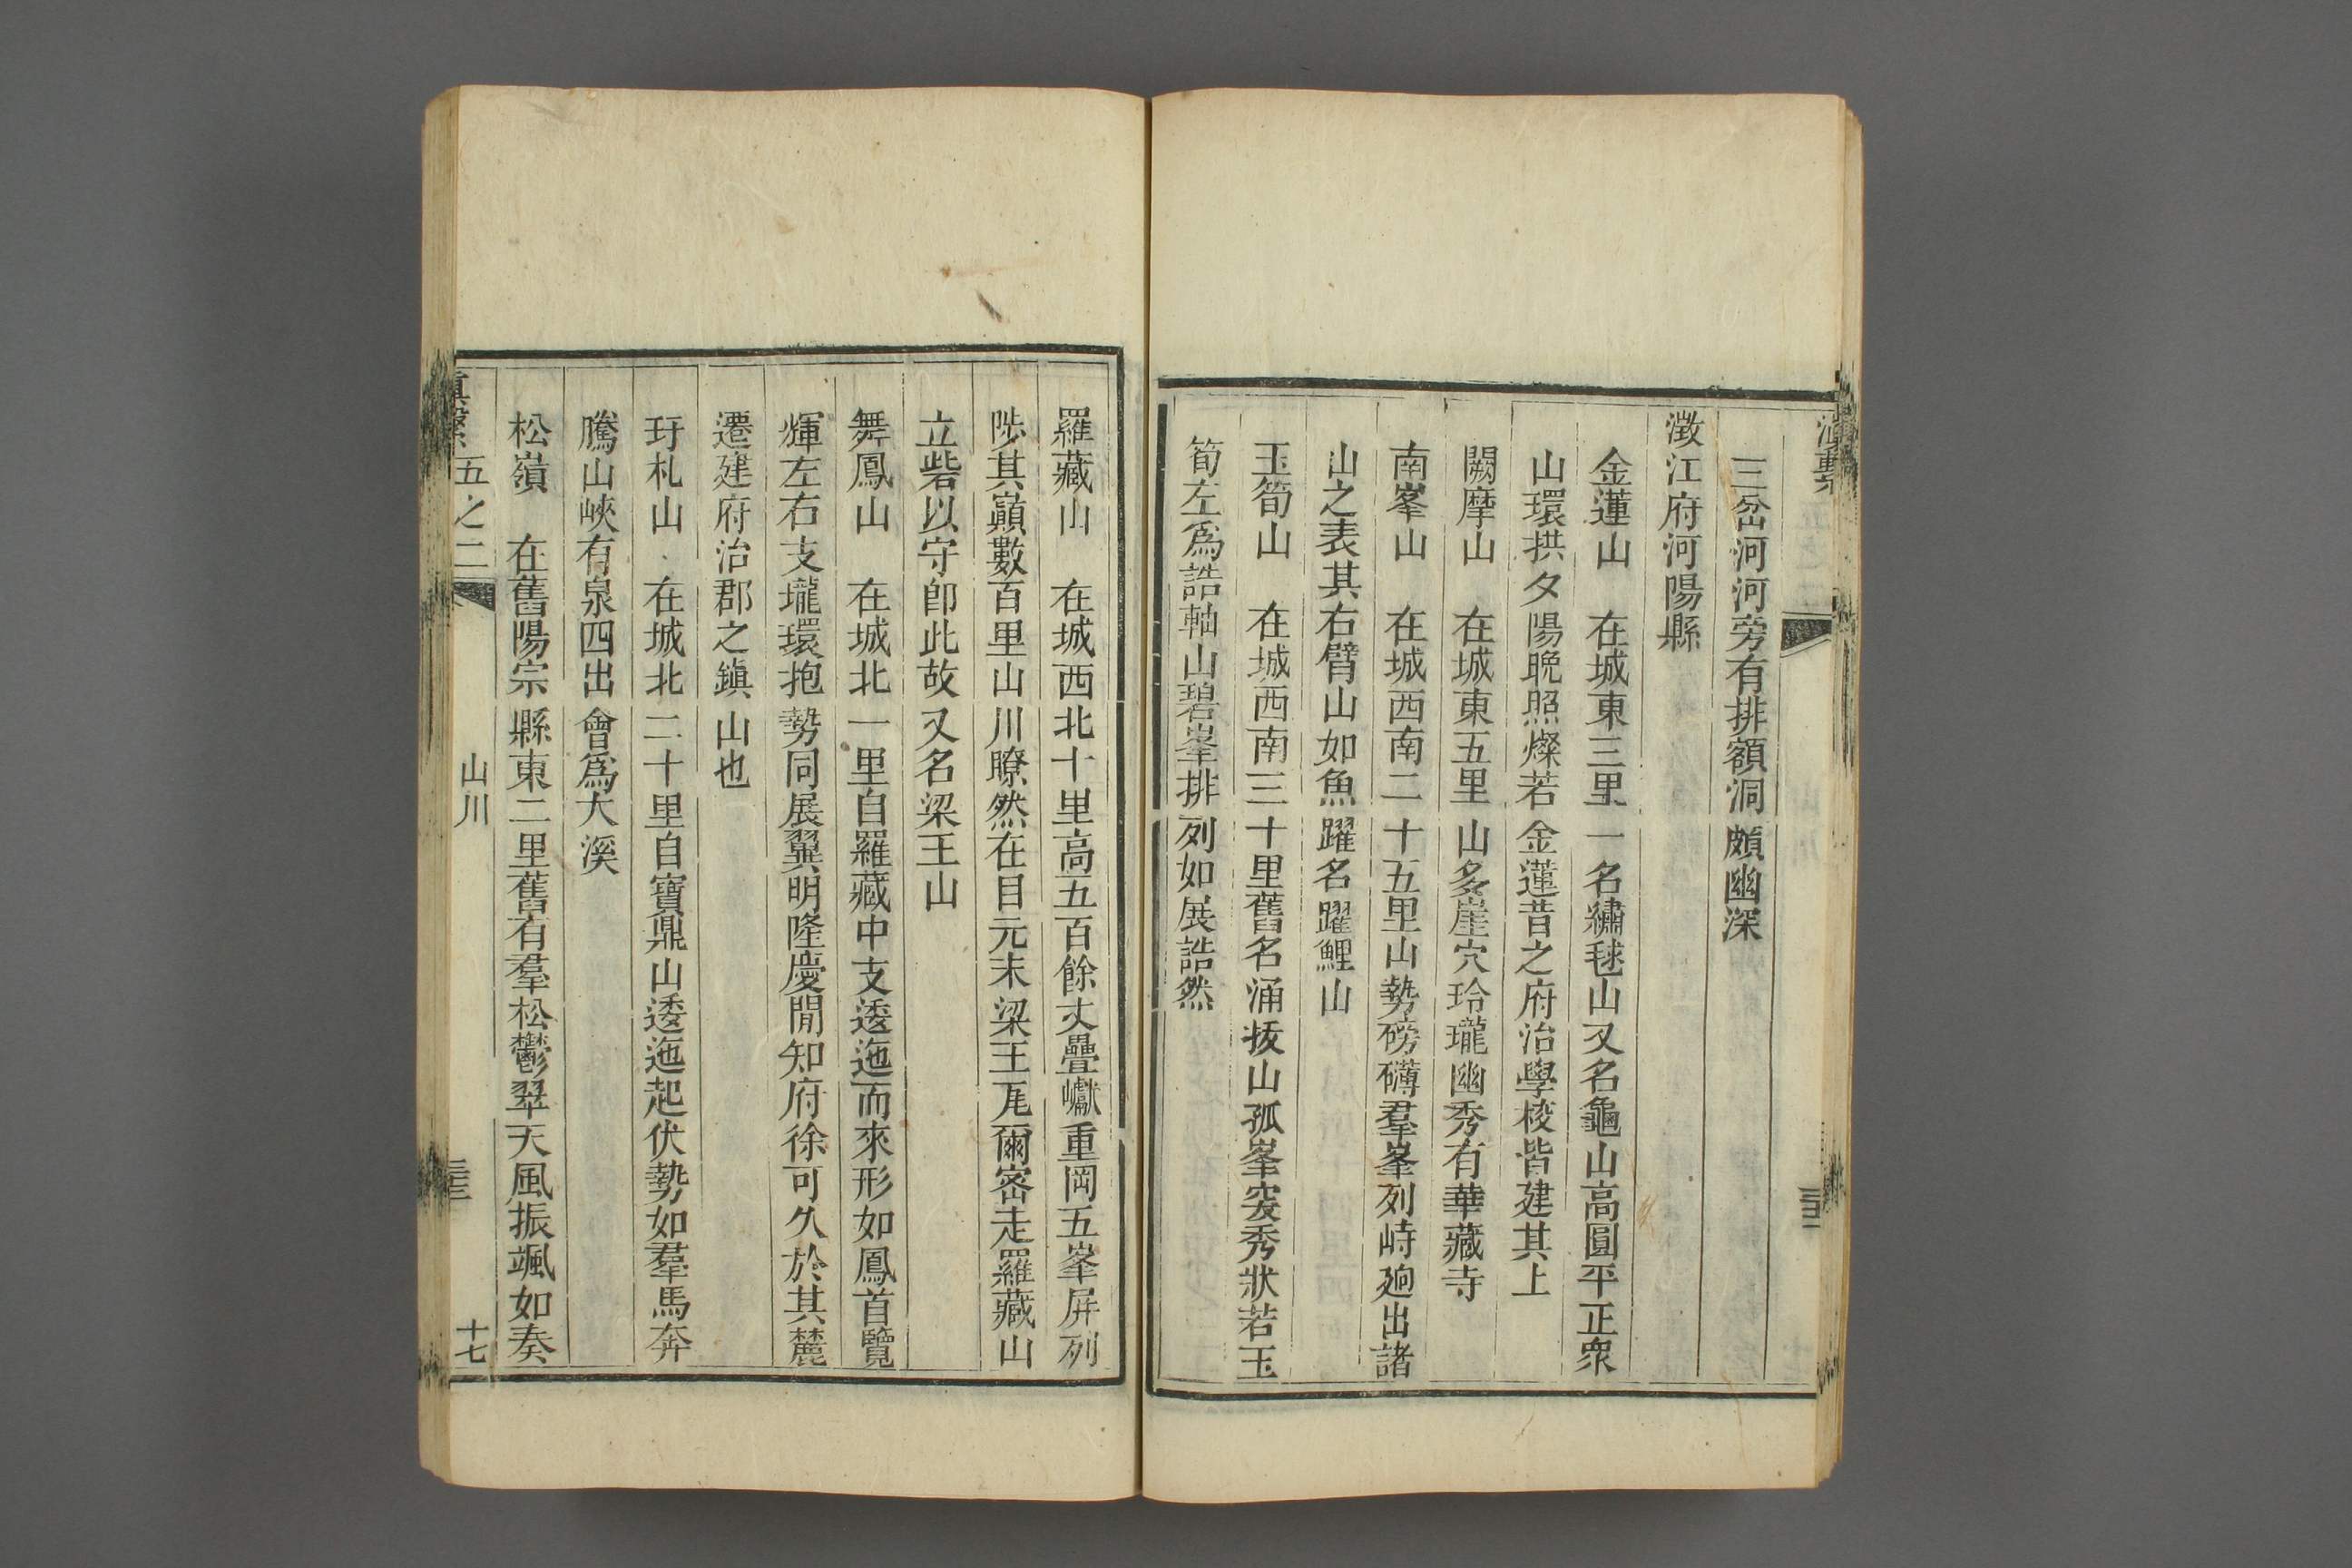 三岔河河旁有排額洞頗幽深
澂江府河陽縣
金蓮山　在城東三里一名繡毬山又名龜山高圓平正衆
山環拱夕陽晚照燦若金蓮昔之府治學校皆建其上
闕摩山　在城東五里山多崖穴玲瓏幽秀有華藏寺
南峯山　在城西南二十五里山勢磅礴羣峯列峙廻出諸
山之表其右臂山如魚躍名躍鯉山
玉筍山　在城西南三十里舊名涌拔山孤峯峻秀狀若玉
筍左爲誥軸山碧峯排列如展誥然
羅藏山　在城西北十里高五百餘丈疊巘重岡五峯屏列
陟其巔數百里山川瞭然在目元末梁王瓦爾密走羅藏山
立砦以守卽此故又名梁王山
舞鳳山　在城北一里自羅藏中支逶迤而來形如鳳首覽
輝左右支壠環抱勢同展翼明隆慶閒知府徐可久於其麓
遷建府治郡之鎮山也
玗札山　在城北二十里自寶鼎山逶迤起伏勢如羣馬奔
騰山峽有泉四出會爲大溪
松嶺　在舊陽宗縣東二里舊有羣松鬱翠天風振颯如奏
滇繫　五之二　山川　十七